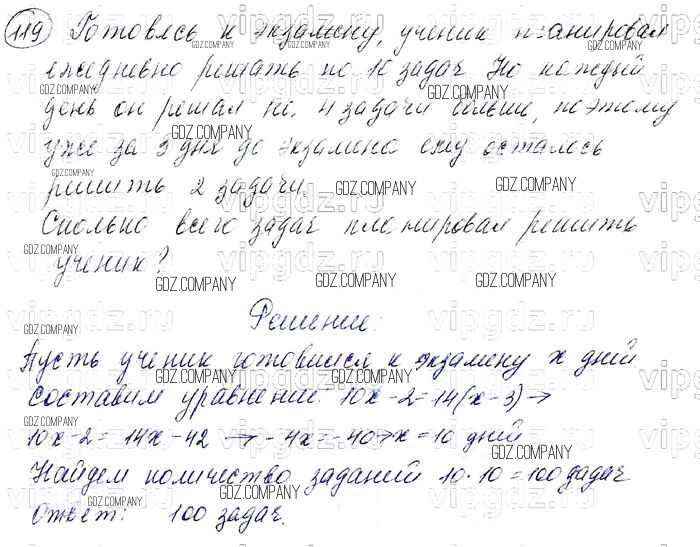 119 Готовясь к экзамену, ученик планировал
ежедневно решать по 10 задач. Но каждый
день он решал на 4 задачи больше, поэтому
уже за 3 дня до экзамена ему осталось
решить 2 задачи.
Сколько всего задач планировал решить
ученик?
Решение:
Пусть ученик готовился к экзамену x дней
составим уравнение: 10x - 2 = 14(x - 3) →
10x - 2 = 14x - 42 → -4x = -40 → x = 10 дней
Найдем количество заданий 10 · 10 = 100 задач
Ответ: 100 задач.